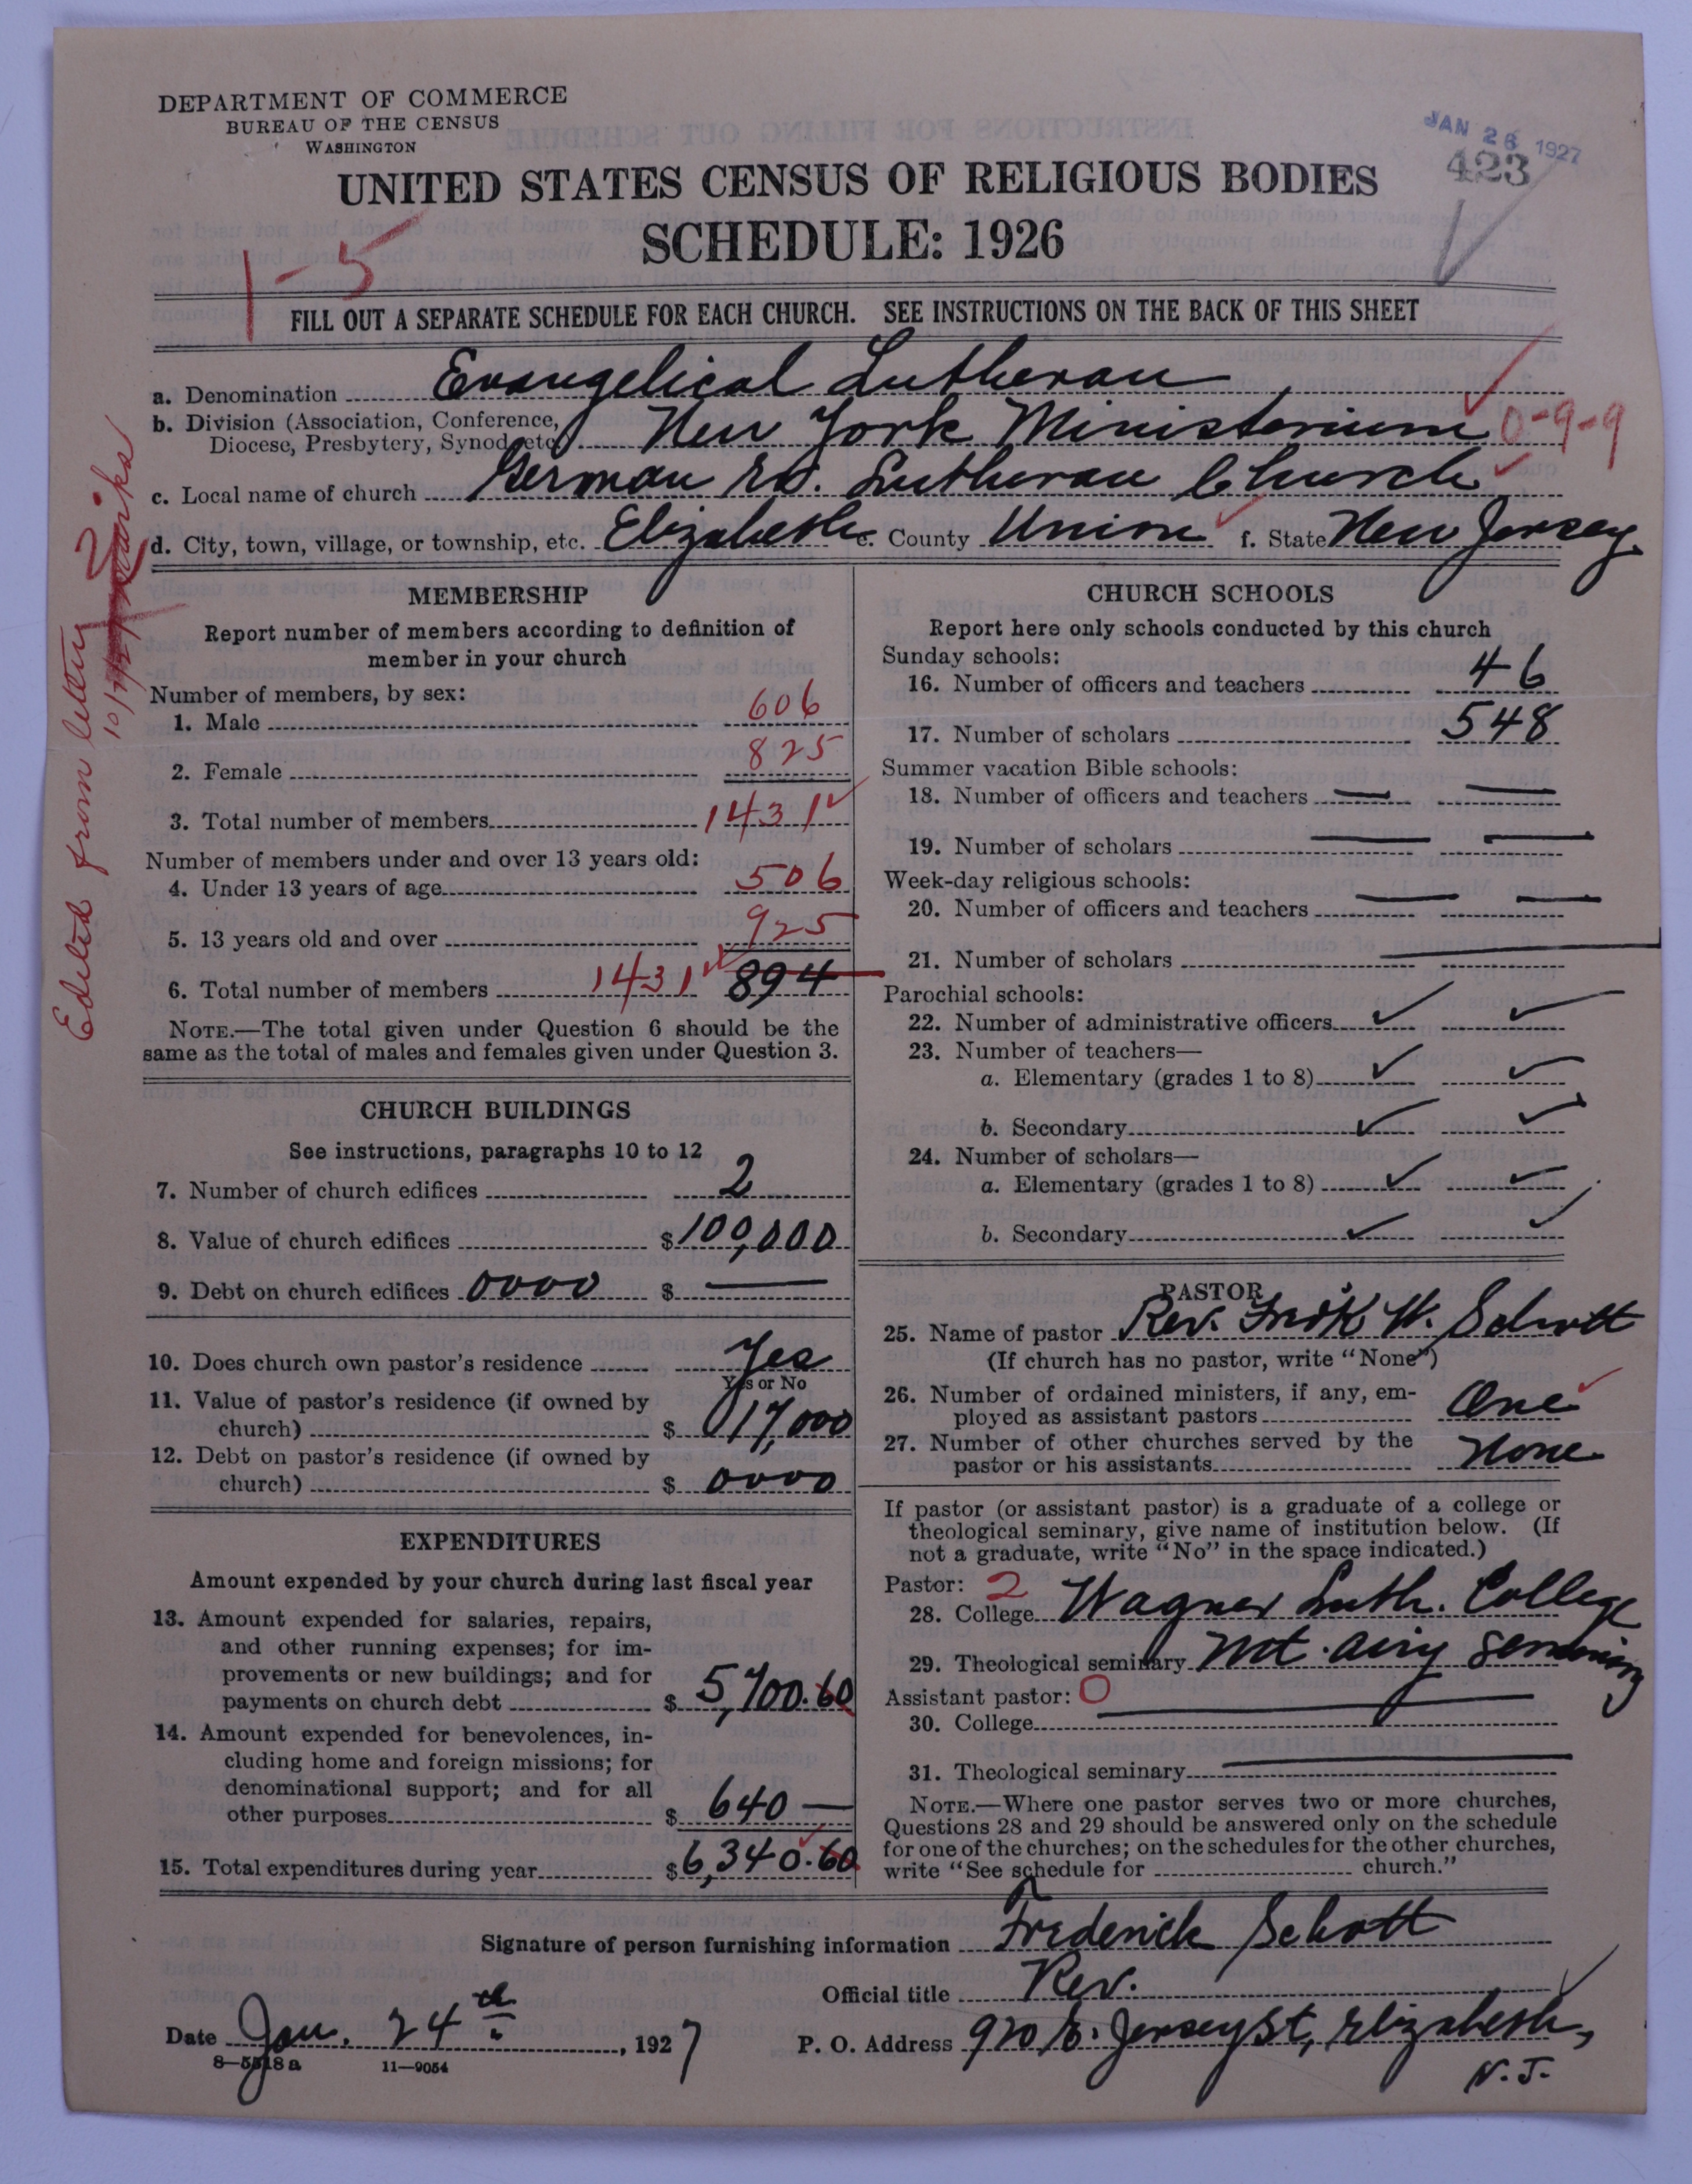 DEPARTMENT OF COMMERCE
BUREAU OF THE CENSUS
WASHINGTON
JAN 26 1927
423
UNITED STATES CENSUS OF RELIGIOUS BODIES
SCHEDULE: 1926
1-5
FILL OUT A SEPARATE SCHEDULE FOR EACH CHURCH. SEE INSTRUCTIONS ON THE BACK OF THIS SHEET
a. Denomination Evangelical Lutheran
b. Division (Association, Conference, Diocese, Presbytery, Synod, etc.) New York Ministerium 0-9-9
c. Local name of church German Ev. Lutheran Church
d. City, town, village, or township, etc. Elizabeth e. County Union f. State New Jersey
Edited from letter
MEMBERSHIP
Report number of members according to definition of
member in your church
Number of members, by sex:
1. Male 606
2. Female 825
3. Total number of members 1431
Number of members under and over 13 years old:
4. Under 13 years of age 506
5. 13 years old and over 925
6. Total number of members 1431 894
NOTE.—The total given under Question 6 should be the
same as the total of males and females given under Question 3.
CHURCH BUILDINGS
See instructions, paragraphs 10 to 12
7. Number of church edifices 2
8. Value of church edifices $100,000
9. Debt on church edifices 0000 $ —
10. Does church own pastor's residence Yes
Yes or No
11. Value of pastor's residence (if owned by
church) $ 17,000
12. Debt on pastor's residence (if owned by
church) $ 0000
EXPENDITURES
Amount expended by your church during last fiscal year
13. Amount expended for salaries, repairs,
and other running expenses; for im-
provements or new buildings; and for
payments on church debt $ 5,700.60
14. Amount expended for benevolences, in-
cluding home and foreign missions; for
denominational support; and for all
other purposes $ 640 —
15. Total expenditures during year $6,340.60
CHURCH SCHOOLS
Report here only schools conducted by this church
Sunday schools:
16. Number of officers and teachers 46
17. Number of scholars 548
Summer vacation Bible schools:
18. Number of officers and teachers — —
19. Number of scholars — —
Week-day religious schools:
20. Number of officers and teachers — —
21. Number of scholars —
Parochial schools:
22. Number of administrative officers ✓ ✓
23. Number of teachers—
a. Elementary (grades 1 to 8) ✓ ✓
b. Secondary ✓ ✓
24. Number of scholars—
a. Elementary (grades 1 to 8) ✓ ✓
b. Secondary ✓ ✓
PASTOR
25. Name of pastor Rev. Fredk W. Schott
(If church has no pastor, write "None")
26. Number of ordained ministers, if any, em-
ployed as assistant pastors One
27. Number of other churches served by the
pastor or his assistants None
If pastor (or assistant pastor) is a graduate of a college or
theological seminary, give name of institution below. (If
not a graduate, write "No" in the space indicated.)
Pastor: 2
28. College Wagner Luth. College
29. Theological seminary Mt. Airy Seminary
Assistant pastor: 0
30. College —
31. Theological seminary —
NOTE.—Where one pastor serves two or more churches,
Questions 28 and 29 should be answered only on the schedule
for one of the churches; on the schedules for the other churches,
write "See schedule for church."
Signature of person furnishing information Frederick Schott
Official title Rev.
Date Jan. 24th, 1927 P. O. Address 920 E. Jersey St, Elizabeth,
N. J.
8—5518 a 11—9054